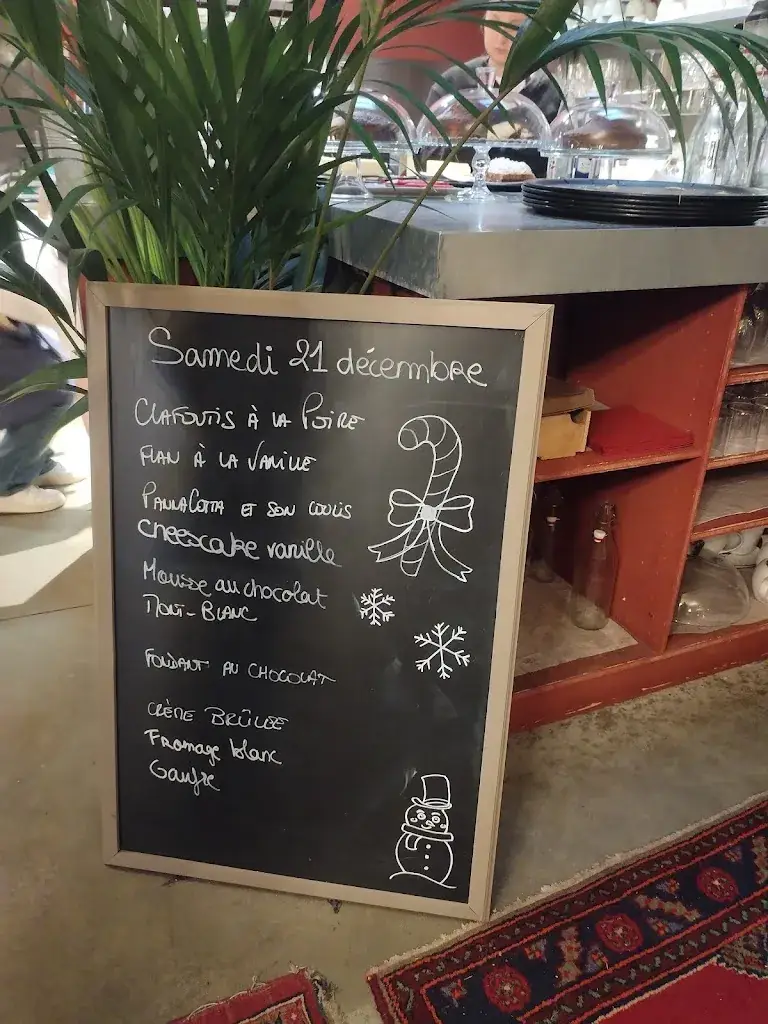 Samedi 21 décembre
CLAFOUTIS À LA POIRE
FLAN À LA VANILLE
PANNACOTTA ET SON COULIS
cheescake vanille
Mousse au chocolat
MONT-BLANC
FONDANT AU CHOCOLAT
CRÈME BRÛLÉE
Fromage blanc
Gaufre